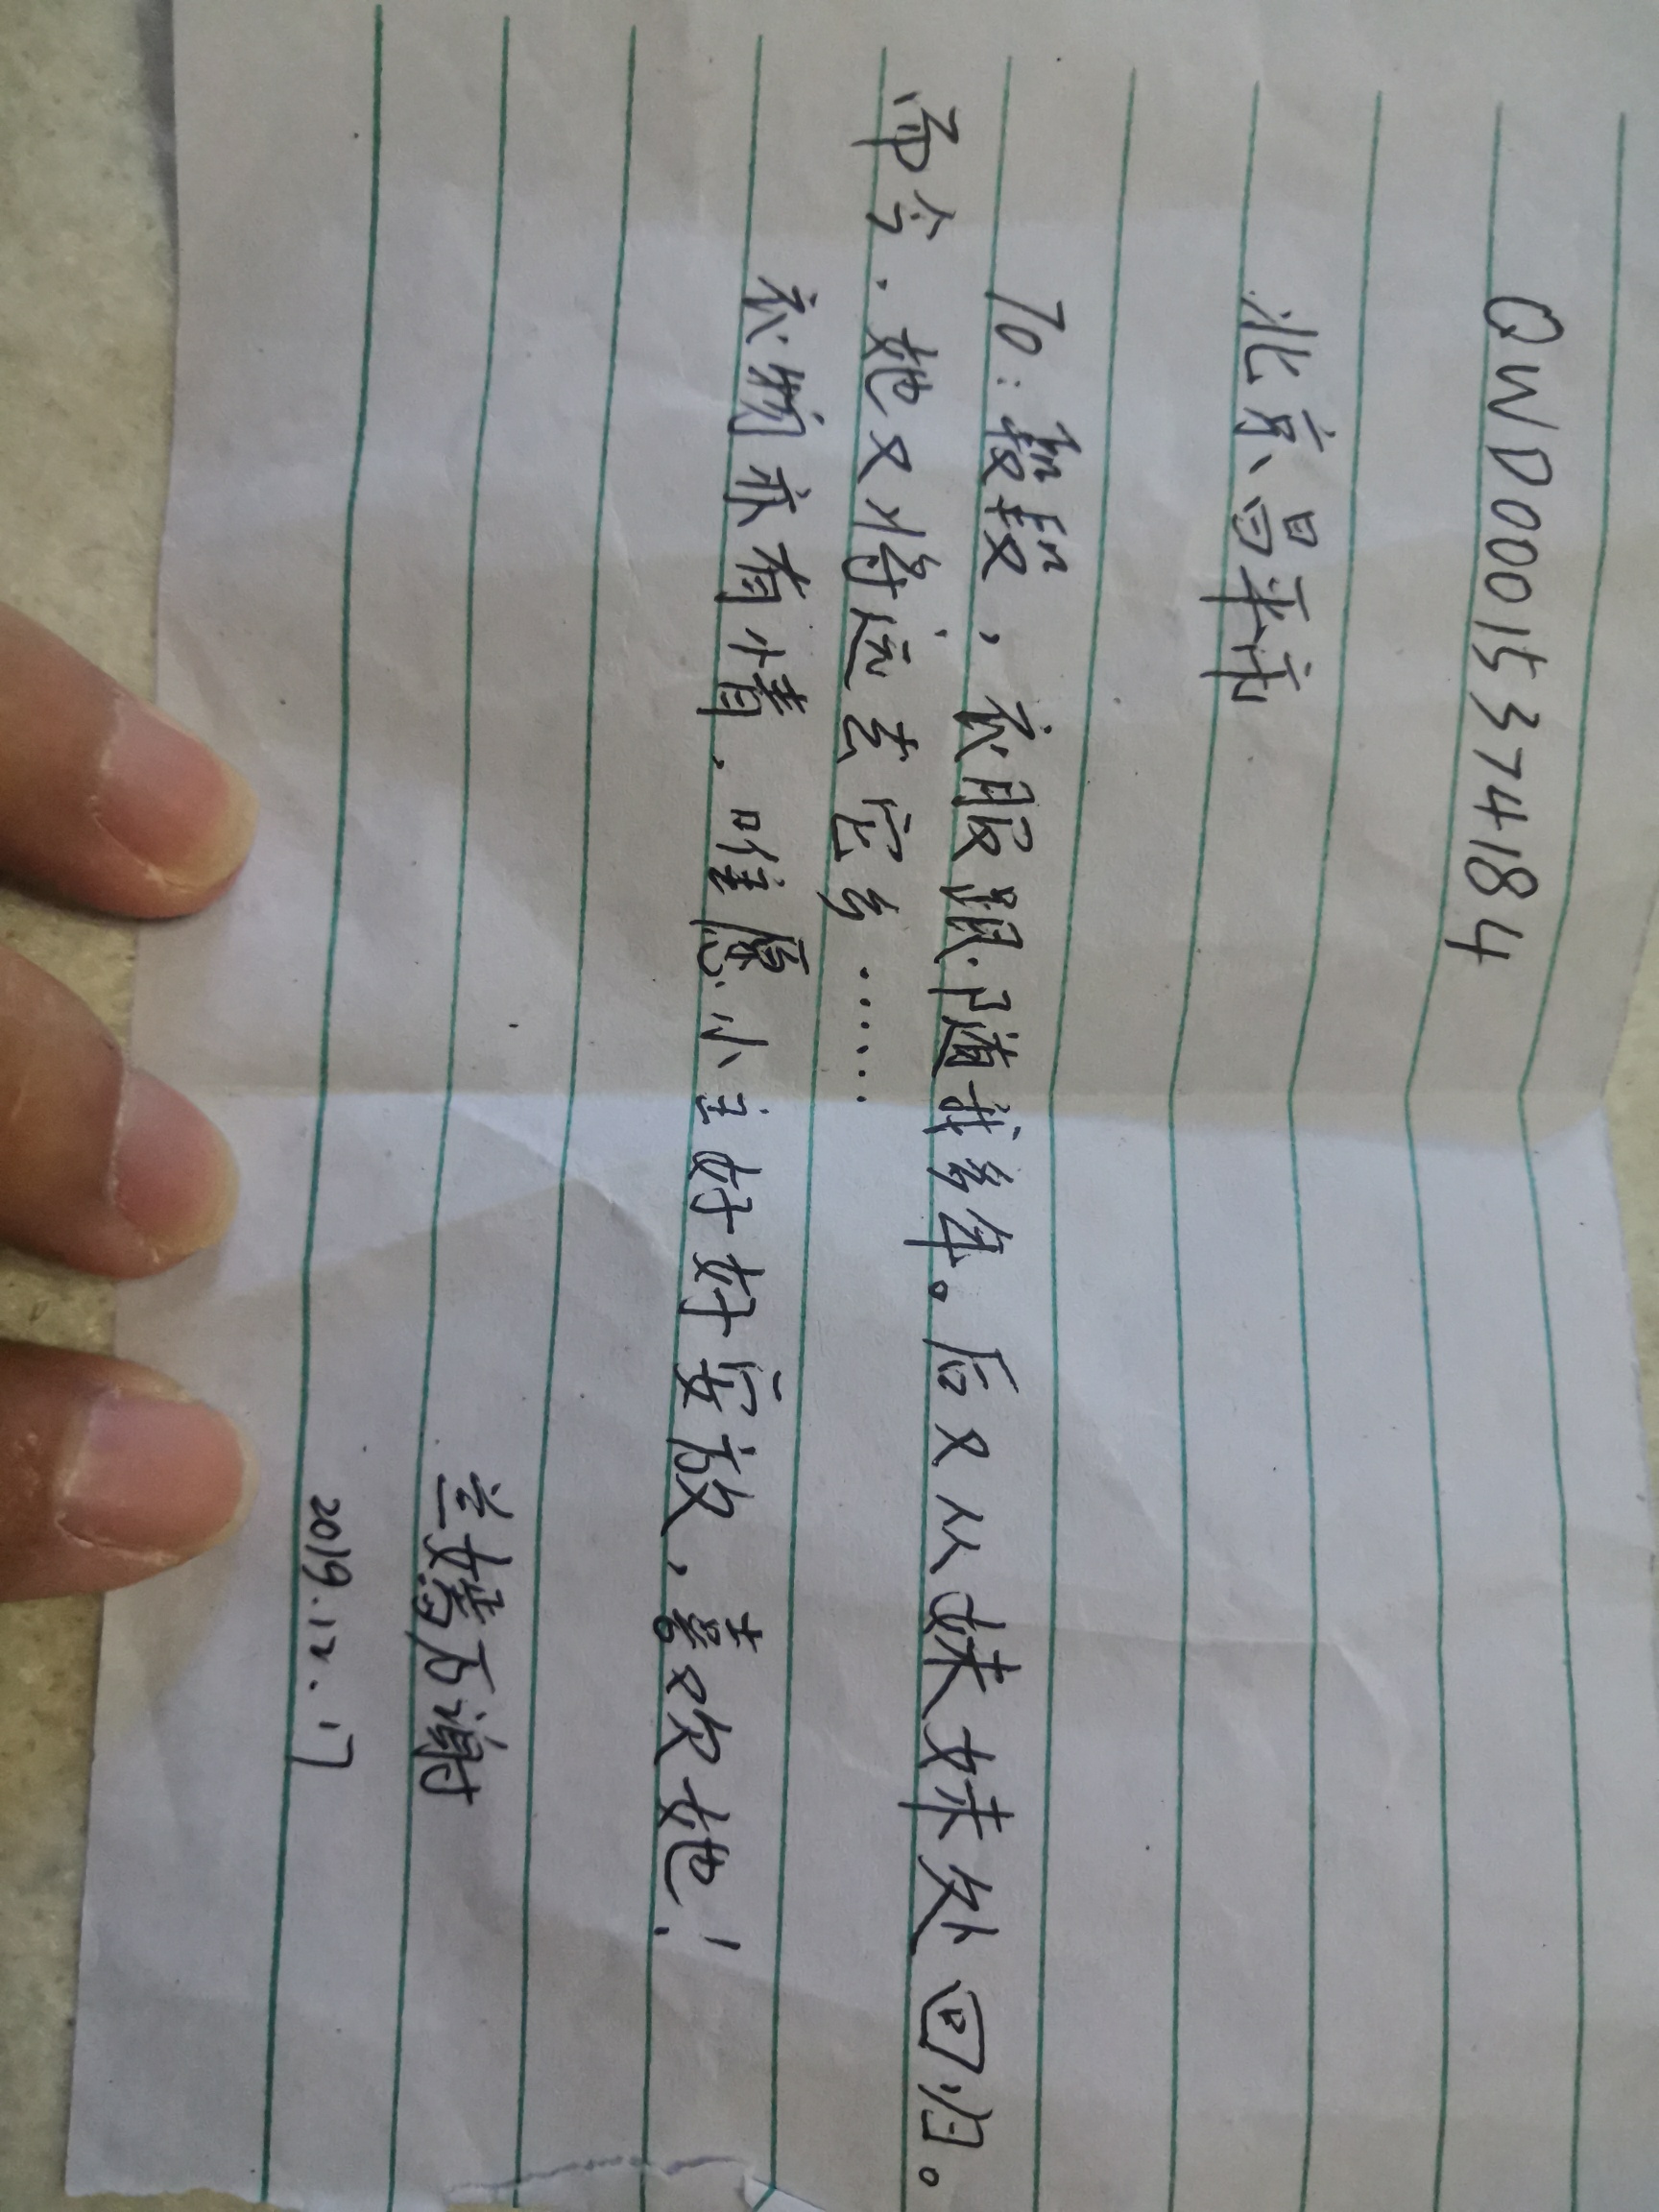 QWD00015374184
北京昌平市
To:毅段,衣服跟随我多年。后又从妹妹处回归。
而今.她又将远去它乡……
衣物亦有情,唯愿小主好好安放,喜欢她!
兰嫂百谢
2019.12.17